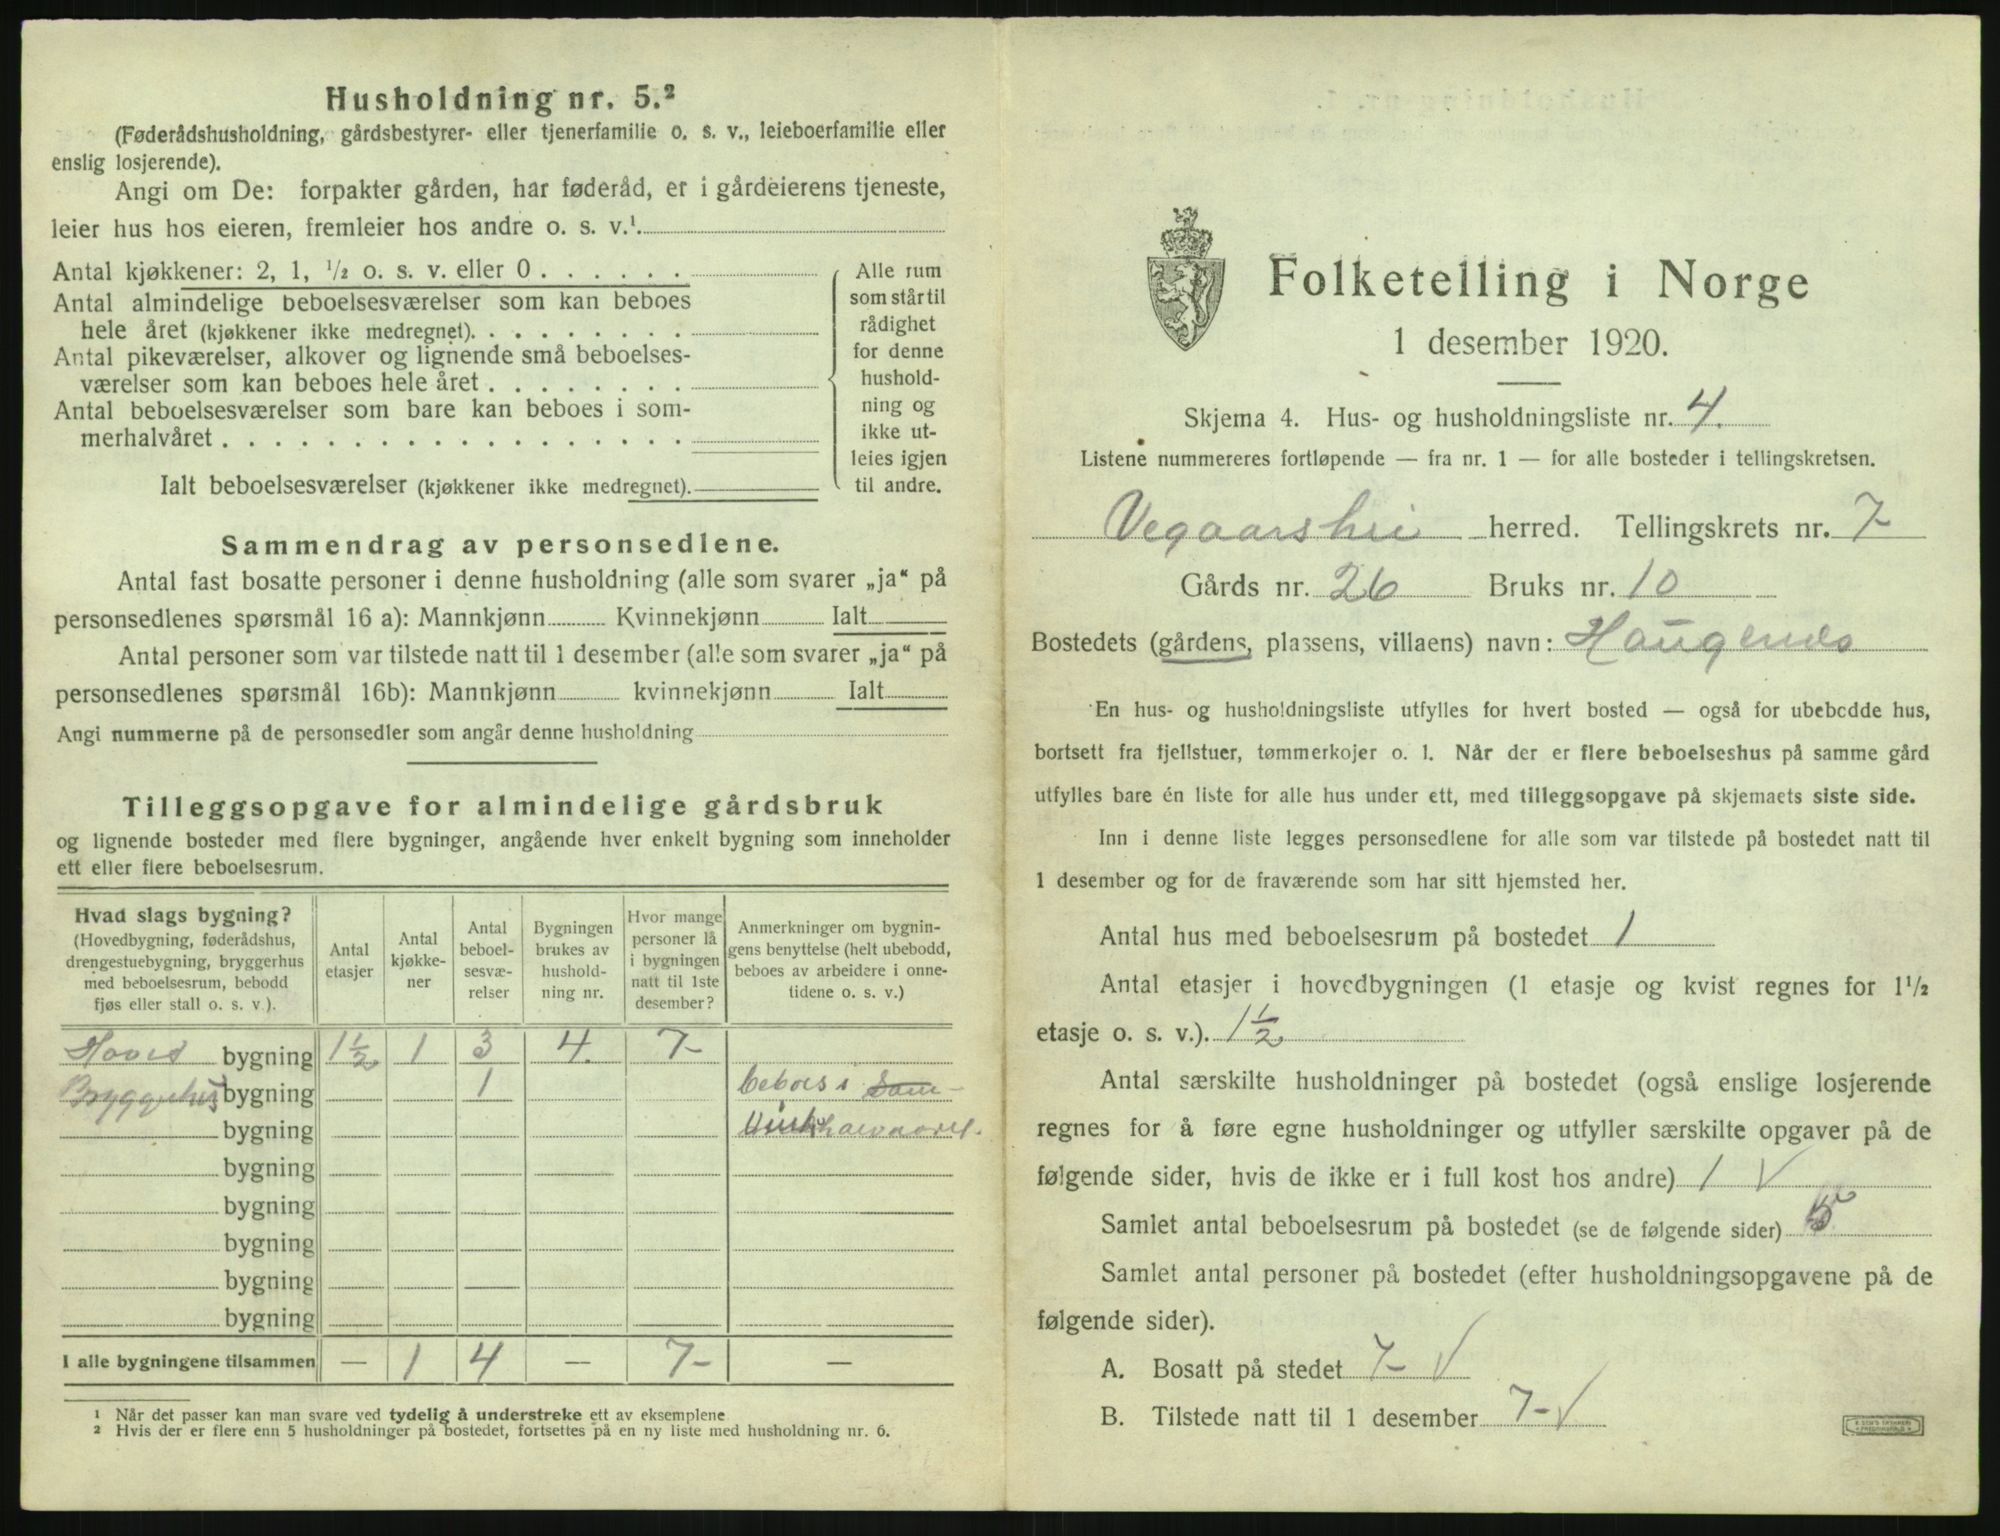 Husholdning nr. 5.²
(Føderådshusholdning, gårdsbestyrer- eller tjenerfamilie o. s. v., leieboerfamilie eller
enslig losjerende).
Angi om De: forpakter gården, har føderåd, er i gårdeierens tjeneste,
leier hus hos eieren, fremleier hos andre o. s. v.¹
Antal kjøkkener: 2, 1, ½ o. s. v. eller 0
Antal almindelige beboelsesværelser som kan beboes
hele året (kjøkkener ikke medregnet).
Antal pikeværelser, alkover og lignende små beboelses-
værelser som kan beboes hele året
Antal beboelsesværelser som bare kan beboes i som-
merhalvåret
Ialt beboelsesværelser (kjøkkener ikke medregnet).
Alle rum
som står til
rådighet
for denne
hushold-
ning og
ikke ut-
leies igjen
til andre.
Sammendrag av personsedlene.
Antal fast bosatte personer i denne husholdning (alle som svarer „ja“ på
personsedlenes spørsmål 16 a): Mannkjønn Kvinnekjønn Ialt
Antal personer som var tilstede natt til 1 desember (alle som svarer „ja“ på
personsedlenes spørsmål 16b): Mannkjønn kvinnekjønn Ialt
Angi nummerne på de personsedler som angår denne husholdning
Tilleggsopgave for almindelige gårdsbruk
og lignende bosteder med flere bygninger, angående hver enkelt bygning som inneholder
ett eller flere beboelsesrum.
Hvad slags bygning?
(Hovedbygning, føderådshus,
drengestuebygning, bryggerhus
med beboelsesrum, bebodd
fjøs eller stall o. s. v.).
Antal
etasjer
Antal
kjøkke-
ner
Antal
beboel-
sesvæ-
relser
Bygningen
brukes av
hushold-
ning nr.
Hvor mange
personer lå
i bygningen
natt til 1ste
desember?
Anmerkninger om bygnin-
gens benyttelse (helt ubebodd,
beboes av arbeidere i onne-
tidene o. s. v.)
Hoved bygning 1½ 1 3 4. 7-
Bryggerhus bygning 1 beboes i Som-
bygning
bygning
bygning
bygning
bygning
bygning
I alle bygningene tilsammen — 1 4 — 7- —
¹ Når det passer kan man svare ved tydelig å understreke ett av eksemplene
² Hvis der er flere enn 5 husholdninger på bostedet, fortsettes på en ny liste med husholdning nr. 6.
Folketelling i Norge
1 desember 1920.
Skjema 4. Hus- og husholdningsliste nr. 4.
Listene nummereres fortløpende — fra nr. 1 — for alle bosteder i tellingskretsen.
Vegaarshei herred. Tellingskrets nr. 7-
Gårds nr. 26 Bruks nr. 10
Bostedets (gårdens, plassens, villaens) navn: Haugenes
En hus- og husholdningsliste utfylles for hvert bosted — også for ubebodde hus,
bortsett fra fjellstuer, tømmerkojer o. l. Når der er flere beboelseshus på samme gård
utfylles bare én liste for alle hus under ett, med tilleggsopgave på skjemaets siste side.
Inn i denne liste legges personsedlene for alle som var tilstede på bostedet natt til
1 desember og for de fraværende som har sitt hjemsted her.
Antal hus med beboelsesrum på bostedet 1
Antal etasjer i hovedbygningen (1 etasje og kvist regnes for 1½
etasje o. s. v.). 1½
Antal særskilte husholdninger på bostedet (også enslige losjerende
regnes for å føre egne husholdninger og utfyller særskilte opgaver på de
følgende sider, hvis de ikke er i full kost hos andre) 1 √
Samlet antal beboelsesrum på bostedet (se de følgende sider) 5
Samlet antal personer på bostedet (efter husholdningsopgavene på de
følgende sider).
A. Bosatt på stedet 7- √
B. Tilstede natt til 1 desember 7- √